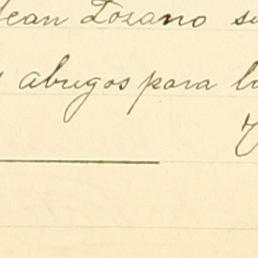 Jean Lozano su
abrigos para la